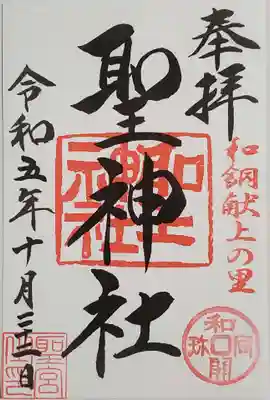 奉拝
和銅献上の里
聖神社
令和五年十月二十二日
聖神社
和同開珎
聖宮